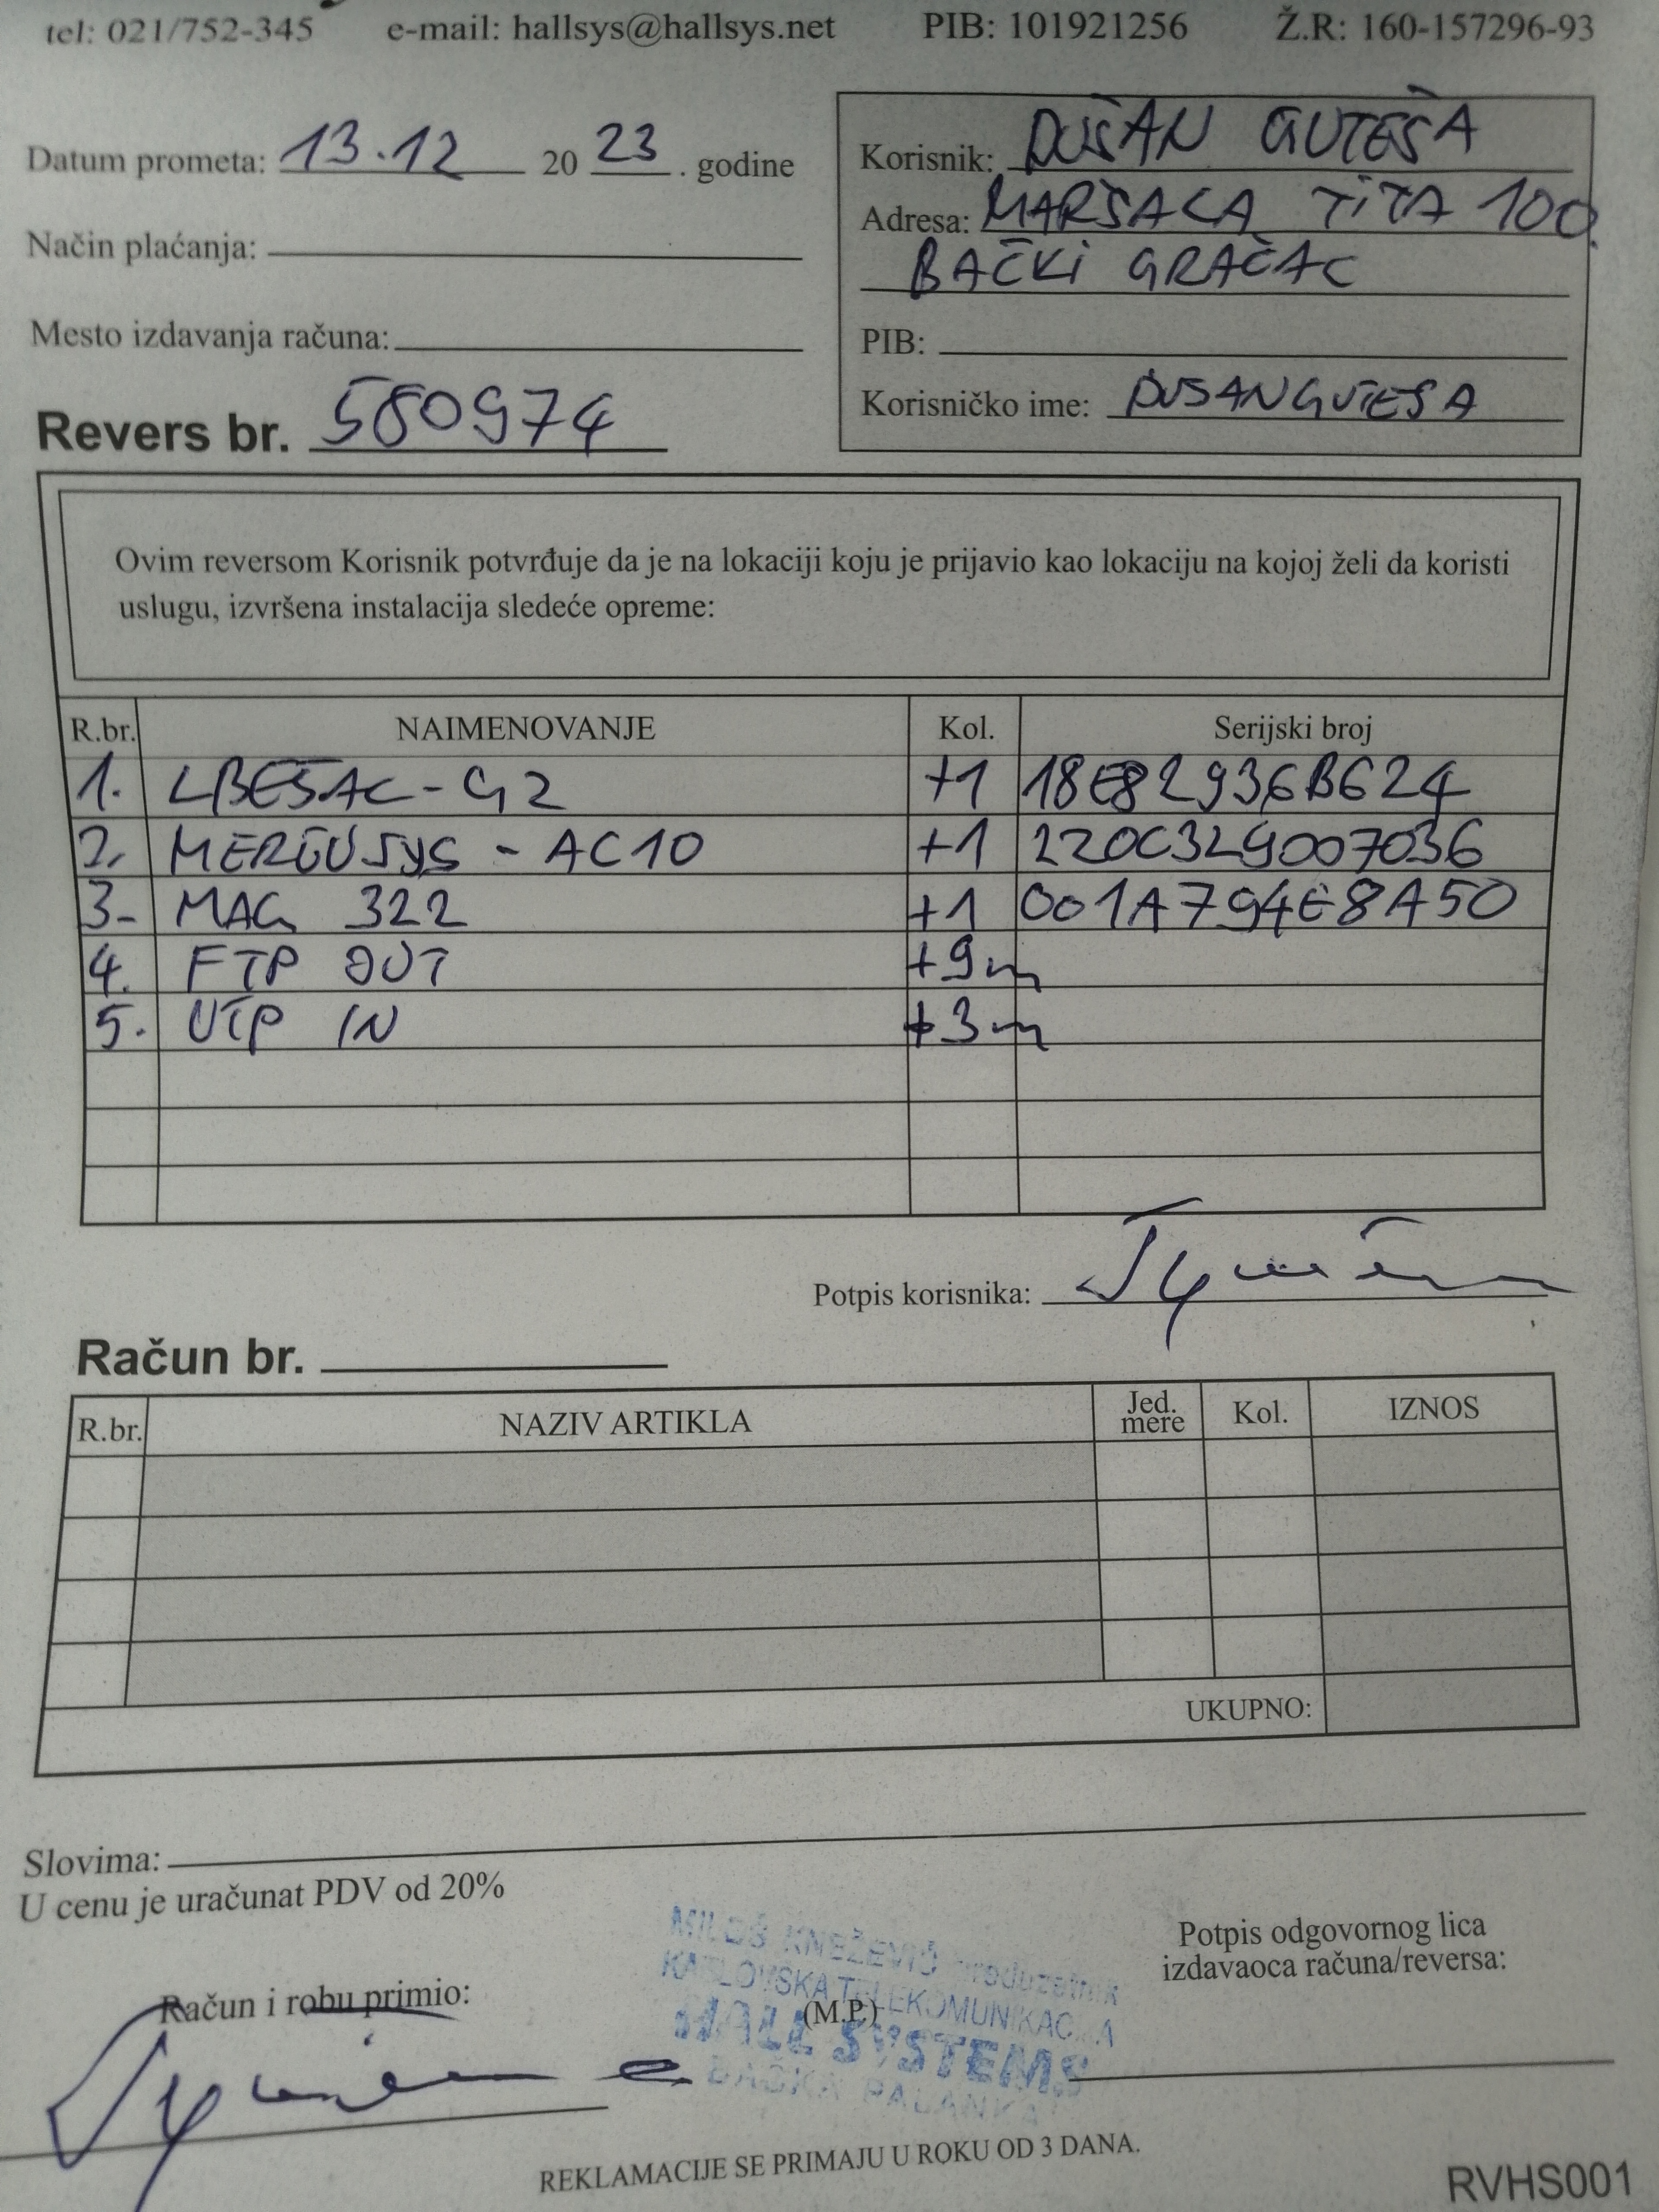 tel: 021/752-345 e-mail: hallsys@hallsys.net PIB: 101921256 Ž.R: 160-157296-93
Datum prometa: 13.12 20 23 . godine
Način plaćanja:
Mesto izdavanja računa:
Revers br. 580974
Korisnik: DUŠAN GUTEŠA
Adresa: MARŠALA TITA 100.
BAČKI GRAČAC
PIB:
Korisničko ime: DUSANGUTESA
Ovim reversom Korisnik potvrđuje da je na lokaciji koju je prijavio kao lokaciju na kojoj želi da koristi
uslugu, izvršena instalacija sledeće opreme:
R.br. NAIMENOVANJE Kol. Serijski broj
1. LBE5AC-G2 +1 18E82936B624
2. MERCUSYS - AC10 +1 220C329007036
3- MAG 322 +1 001A794E8A50
4. FTP OUT +9m
5. UTP IN +3m
Potpis korisnika:
Račun br.
R.br. NAZIV ARTIKLA Jed. mere Kol. IZNOS
UKUPNO:
Slovima:
U cenu je uračunat PDV od 20%
Potpis odgovornog lica
izdavaoca računa/reversa:
Račun i robu primio:
MILOŠ KNEŽEVIĆ preduzetnik
KABLOVSKA TELEKOMUNIKACIJA
(M.P.)
HALL SYSTEMS
BAČKA PALANKA
REKLAMACIJE SE PRIMAJU U ROKU OD 3 DANA.
RVHS001